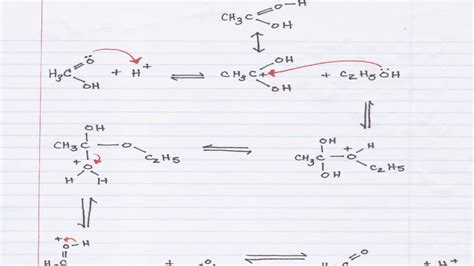 O - H
CH3C
OH
O
CH3C
OH
+ H+
OH
CH3C+
OH
+ C2H5OH
OH
CH3C - O - C2H5
O+
H H
OH H
CH3C - O+
OH C2H5
+
O - H
O
+